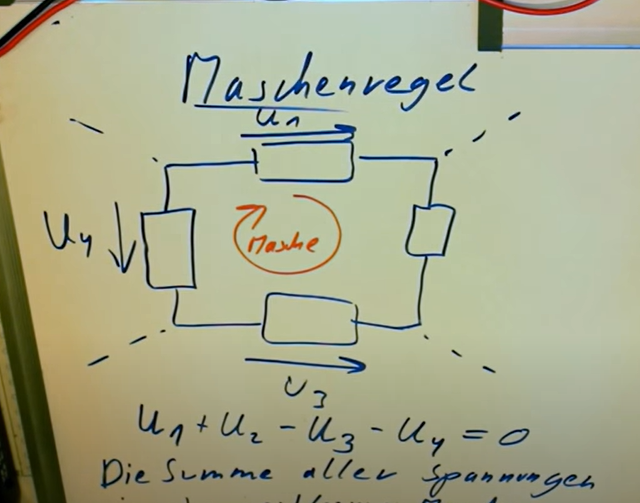 Maschenregel
U1
U4
Masche
U3
U1 + U2 - U3 - U4 = 0
Die Summe aller Spannungen